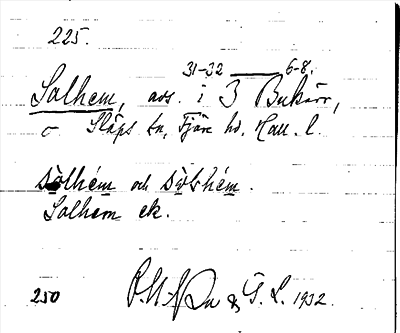 225.
31-32 6-8.
Solhem, avs. i 3 Bukärr,
Släps sn, Fjäre hd. Hall. l.
sòlhém och sòlshém.
Solhem ek.
250 & G. L. 1932.